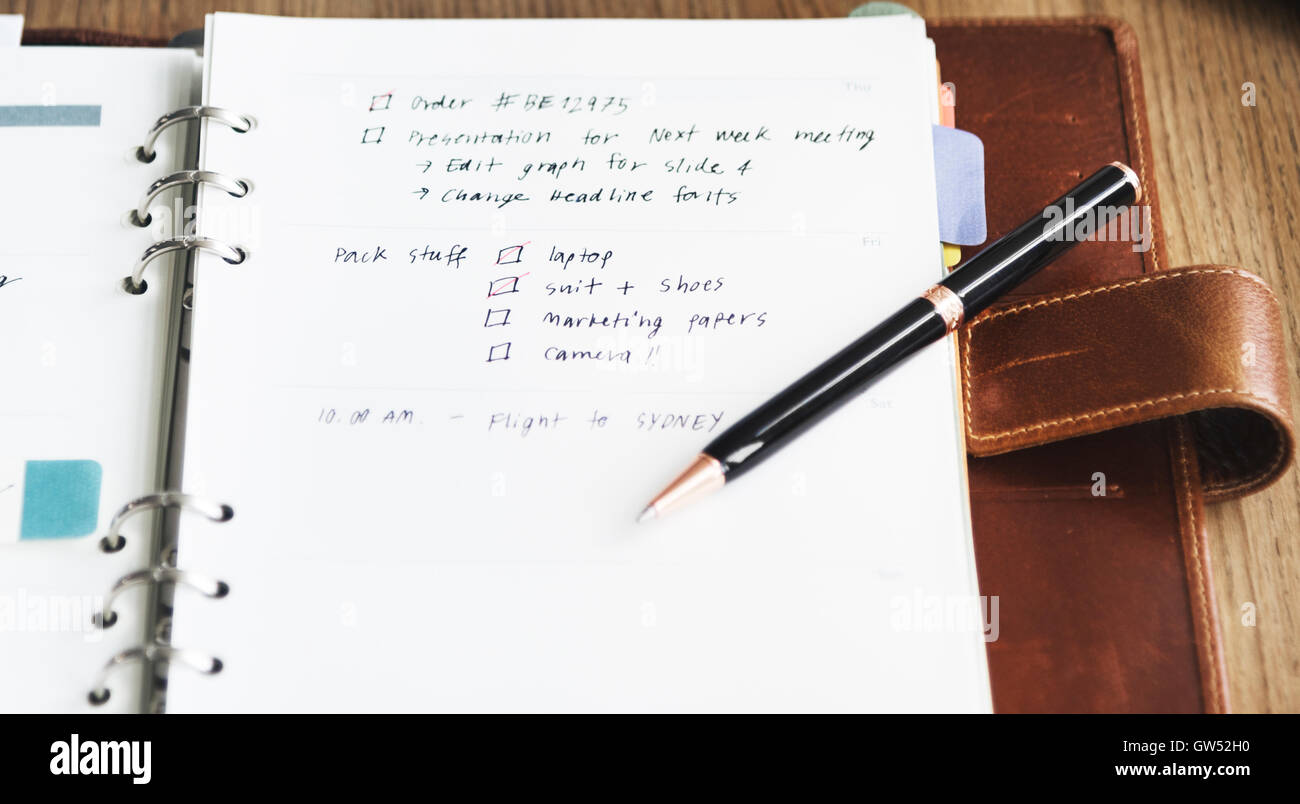 Thu
☑ order #BE12975
☐ Presentation for Next week meeting
→ Edit graph for slide 4
→ Change Headline for its
Fri
Pack stuff ☑ laptop
☑ suit + shoes
☐ Marketing papers
☐ camera!!
Sat
10.00 AM. – Flight to SYDNEY
alamy
alamy
Image ID: GW52H0
www.alamy.com